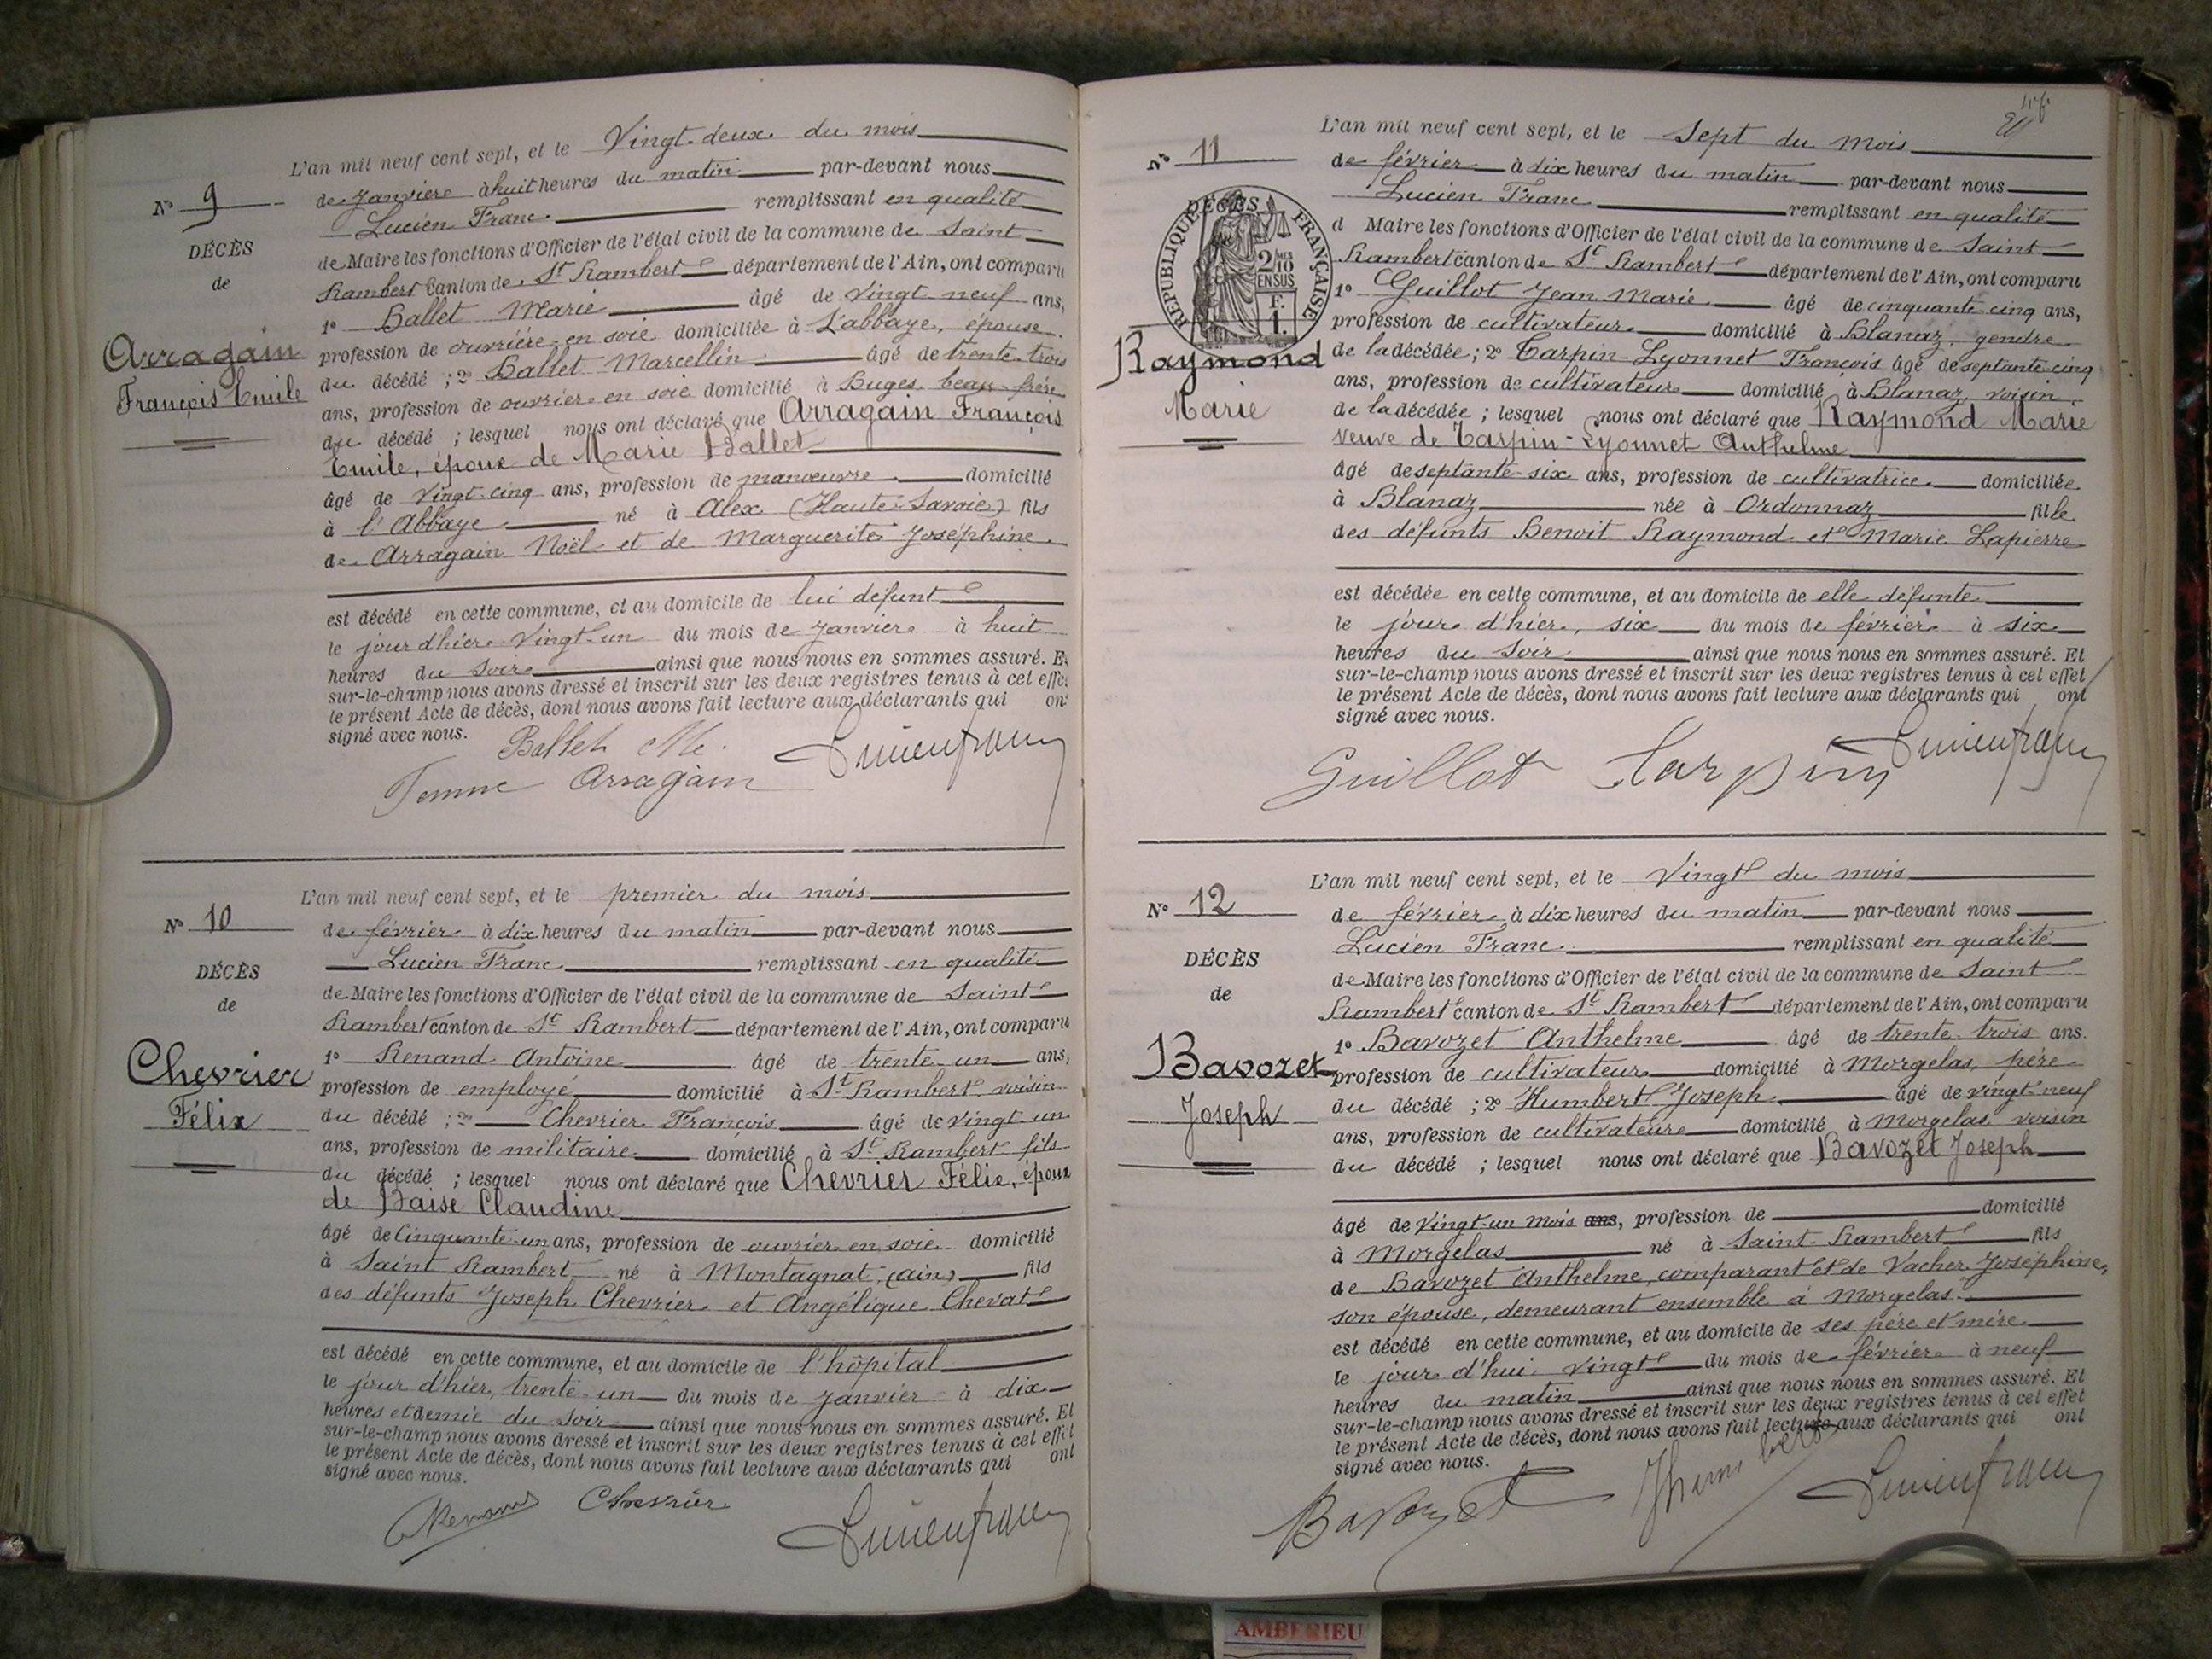 N° 9
DÉCÈS
de
Arragain
François Emile
L'an mil neuf cent sept, et le Vingt-deux du mois
de Janvier à huit heures du matin par-devant nous
Lucien Franc remplissant en qualité
de Maire les fonctions d'Officier de l'état civil de la commune de Saint
Rambert Canton de St Rambert département de l'Ain, ont comparu
1° Ballet Marie âgé de vingt neuf ans,
profession de ouvrière en soie domiciliée à L'abbaye, épouse
du décédé ; 2° Ballet Marcellin âgé de trente-trois
ans, profession de ouvrier en soie domicilié à Buges, beau-frère
du décédé ; lesquel nous ont déclaré que Arragain François
Emile, époux de Marie Ballet
âgé de Vingt-cinq ans, profession de manœuvre domicilié
à l'Abbaye né à Alex (Haute-Savoie) fils
de Arragain Noël et de Marguerite Joséphine
est décédé en cette commune, et au domicile de lui défunt
le jour d'hier Vingt-un du mois de Janvier à huit
heures du soir ainsi que nous nous en sommes assuré. Et
sur-le-champ nous avons dressé et inscrit sur les deux registres tenus à cet effet
le présent Acte de décès, dont nous avons fait lecture aux déclarants qui ont
signé avec nous.
Ballet M.
Femme Arragain
Lucien Franc
N° 10
DÉCÈS
de
Chevrier
Félix
L'an mil neuf cent sept, et le premier du mois
de février à dix heures du matin par-devant nous
Lucien Franc remplissant en qualité
de Maire les fonctions d'Officier de l'état civil de la commune de Saint
Rambert canton de St Rambert département de l'Ain, ont comparu
1° Renand Antoine âgé de trente-un ans,
profession de employé domicilié à St Rambert voisin
du décédé ; 2° Chevrier François âgé de vingt-un
ans, profession de militaire domicilié à St Rambert fils
du décédé ; lesquel nous ont déclaré que Chevrier Félix, époux
de Baise Claudine
âgé de Cinquante-un ans, profession de ouvrier en soie domicilié
à Saint Rambert né à Montagnat (ain) fils
des défunts Joseph Chevrier et Angélique Chevat
est décédé en cette commune, et au domicile de l'hôpital
le jour d'hier, trente-un du mois de Janvier à dix
heures et demie du soir ainsi que nous nous en sommes assuré. Et
sur-le-champ nous avons dressé et inscrit sur les deux registres tenus à cet effet
le présent Acte de décès, dont nous avons fait lecture aux déclarants qui ont
signé avec nous.
Renand Chevrier Lucien Franc
N° 11
DÉCÈS
RÉPUBLIQUE FRANÇAISE
2 10MES
EN SUS
F.
1.
Raymond
Marie
L'an mil neuf cent sept, et le Sept du mois
de février à dix heures du matin par-devant nous
Lucien Franc remplissant en qualité
d Maire les fonctions d'Officier de l'état civil de la commune de Saint
Rambert canton de St Rambert département de l'Ain, ont comparu
1° Guillot Jean Marie âgé de cinquante cinq ans,
profession de cultivateur domicilié à Blanaz, gendre
de la décédée ; 2° Tarpin-Lyonnet François âgé de septante cinq
ans, profession de cultivateur domicilié à Blanaz, voisin
de la décédée ; lesquel nous ont déclaré que Raymond Marie
veuve de Tarpin-Lyonnet Anthelme
âgé de septante-six ans, profession de cultivatrice domiciliée
à Blanaz née à Ordonnaz fille
des défunts Benoit Raymond et Marie Lapierre
est décédée en cette commune, et au domicile de elle défunte
le jour d'hier, six du mois de février à six
heures du soir ainsi que nous nous en sommes assuré. Et
sur-le-champ nous avons dressé et inscrit sur les deux registres tenus à cet effet
le présent Acte de décès, dont nous avons fait lecture aux déclarants qui ont
signé avec nous.
Guillot Tarpin Lucien Franc
N° 12
DÉCÈS
de
Bavozet
Joseph
L'an mil neuf cent sept, et le Vingt du mois
de février à dix heures du matin par-devant nous
Lucien Franc remplissant en qualité
de Maire les fonctions d'Officier de l'état civil de la commune de Saint
Rambert canton de St Rambert département de l'Ain, ont comparu
1° Bavozet Anthelme âgé de trente-trois ans.
profession de cultivateur domicilié à Morgelas, père
du décédé ; 2° Humbert Joseph âgé de vingt-neuf
ans, profession de cultivateur domicilié à Morgelas voisin
du décédé ; lesquel nous ont déclaré que Bavozet Joseph
âgé de Vingt-un mois ans, profession de domicilié
à Morgelas né à Saint-Rambert fils
de Bavozet Anthelme, comparant et de Vacher Joséphine,
son épouse, demeurant ensemble à Morgelas.
est décédé en cette commune, et au domicile de ses père et mère
le jour d'hui Vingt du mois de février à neuf
heures du matin ainsi que nous nous en sommes assuré. Et
sur-le-champ nous avons dressé et inscrit sur les deux registres tenus à cet effet
le présent Acte de décès, dont nous avons fait lecture aux déclarants qui ont
signé avec nous.
Bavozet Jhumbert Lucien Franc
AMBERIEU